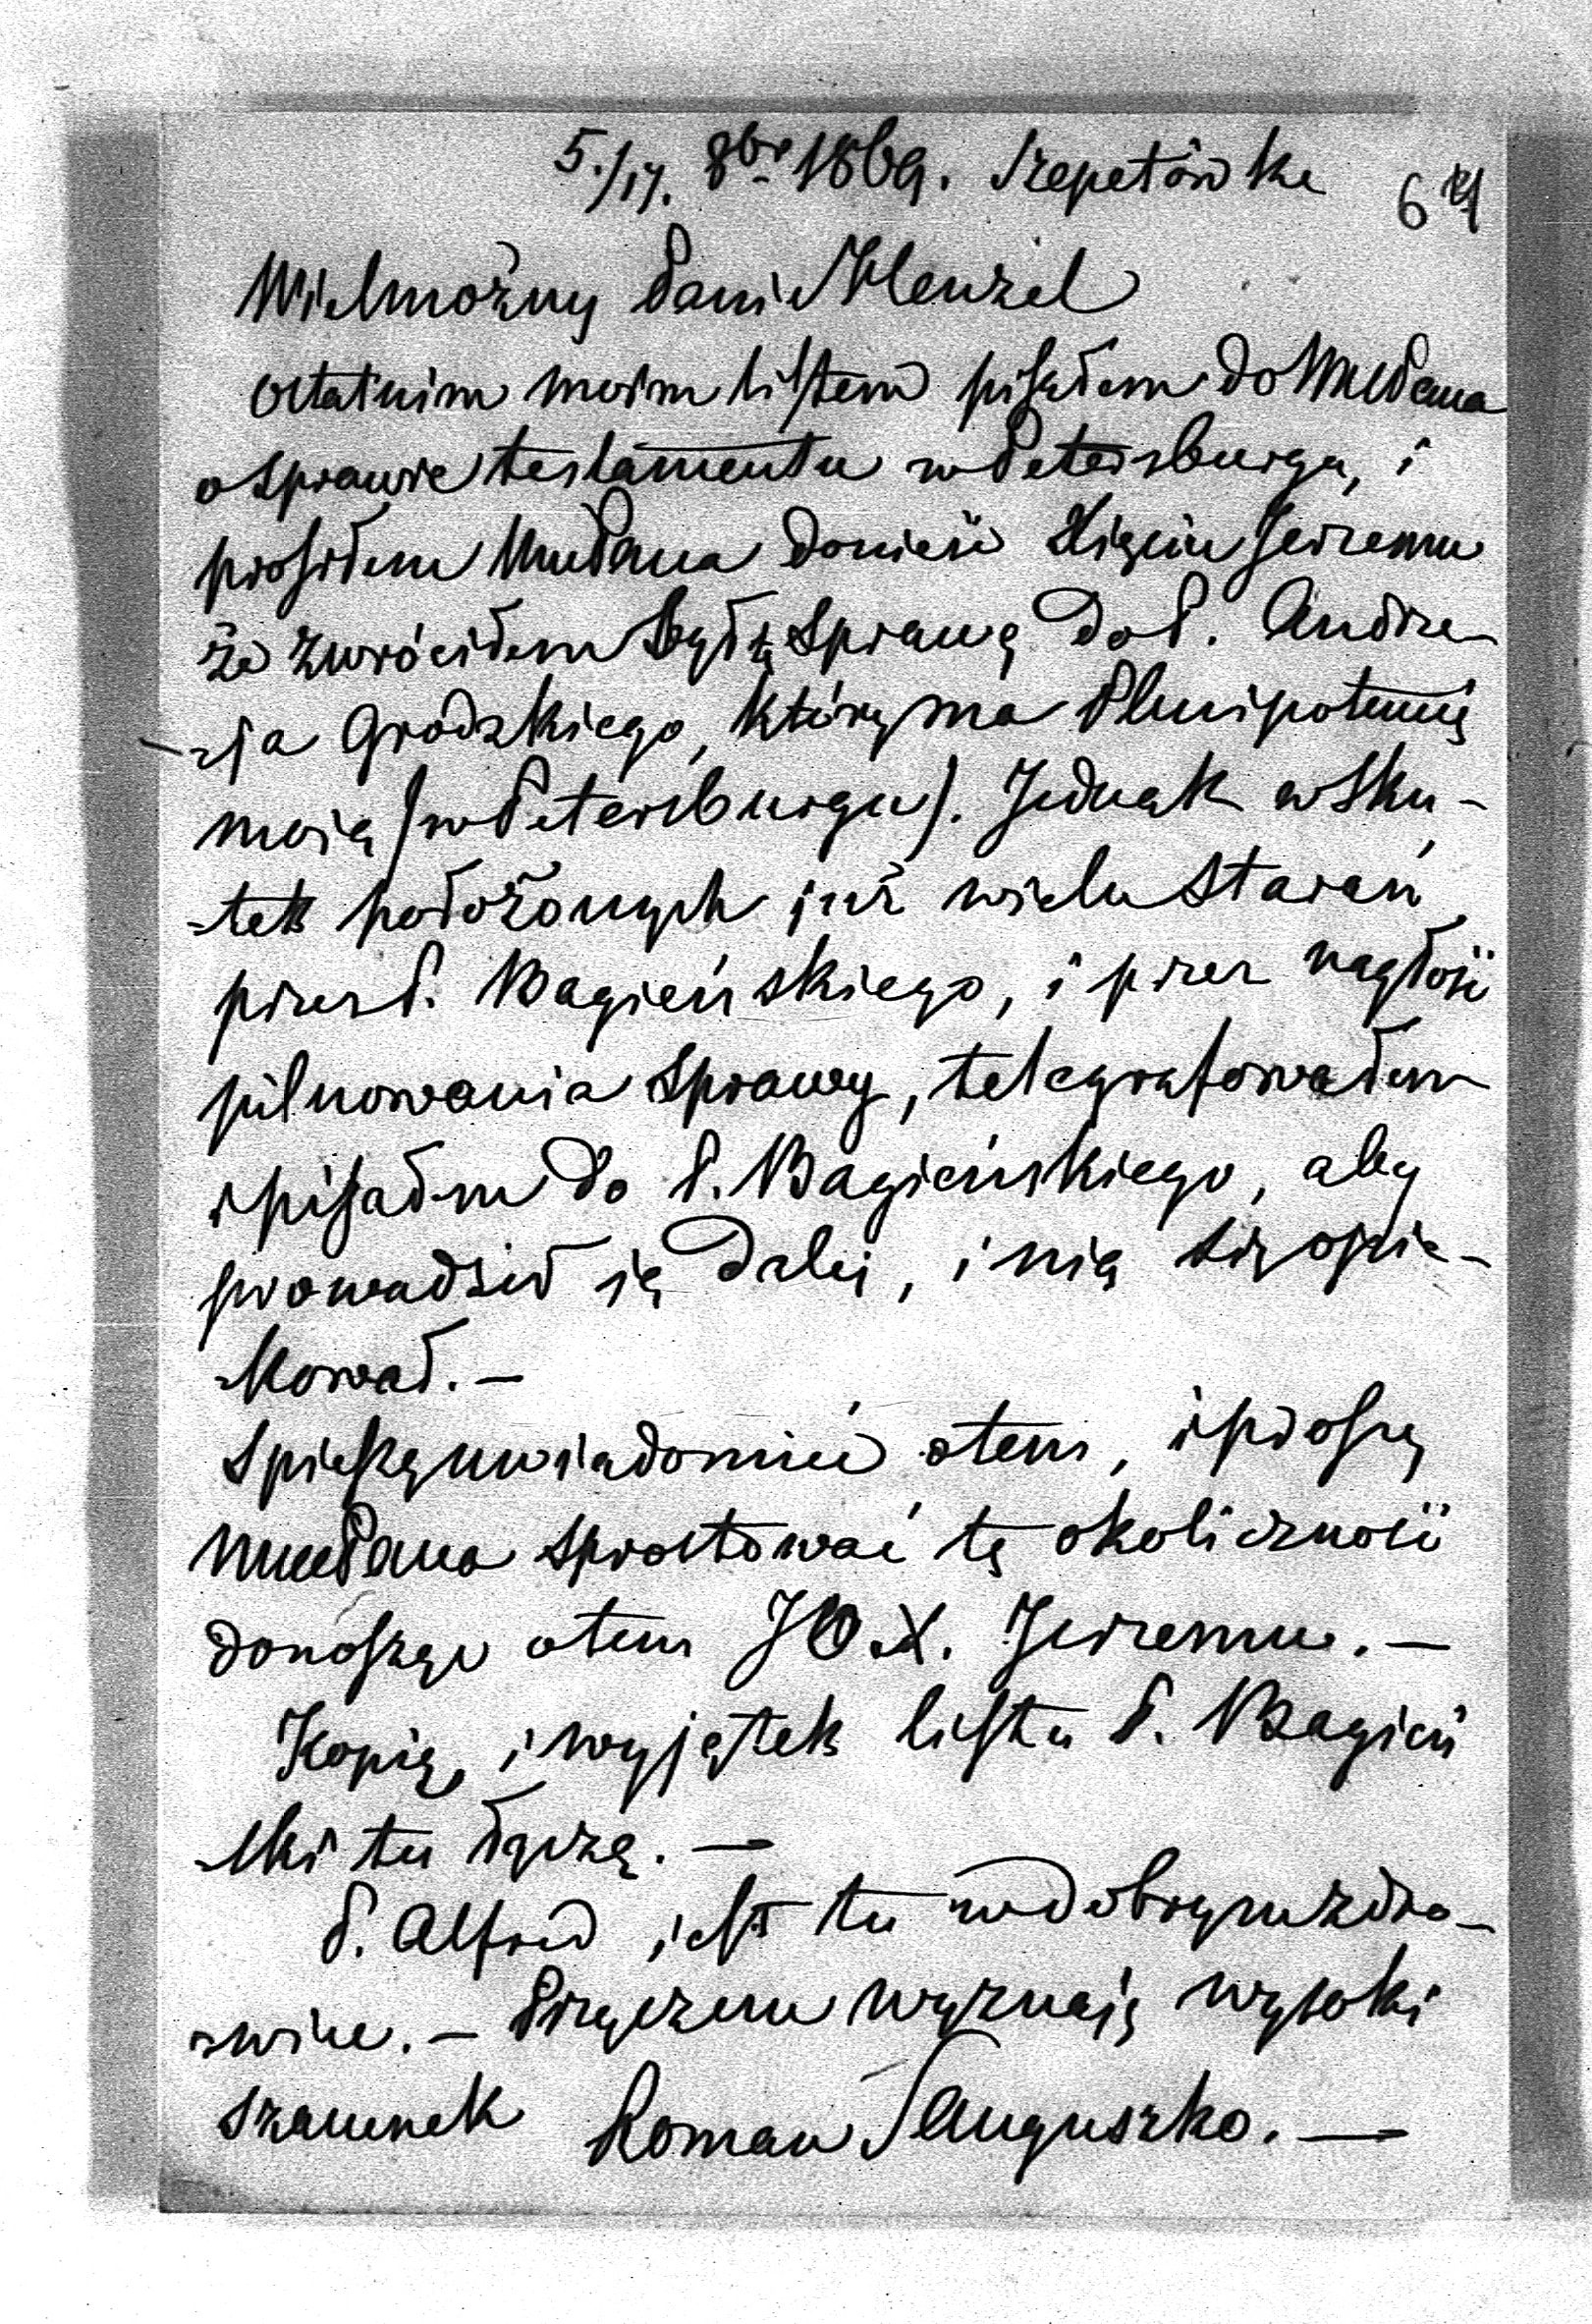 5./17. 8br 1869. Szepetówka 64
Wielmożny Panie Menzel
Ostatnim moim listem pisałem do WMPana
o sprawie testamentu w Petersburgu, i
prosiłem WMPana donieść Xięciu Jeremu
że zwróciłem tę sprawę do P. Andrze-
-ja Grodzkiego, który ma Plenipotencię
moią (w Petersburgu). Jednak w sku-
-tek położonych już wielu starań
przez P. Bagieńskiego, i przez nagłość
pilnowania sprawy, telegrafowałem
i pisałem do P. Bagieńskiego, aby
prowadził ią daléj, i nią się opie-
-kował.-
Spieszę uwiadomić o tem, i proszę
WMPana sprostować tę okoliczność
donosząc o tem JO. X. Jeremu. -
Kopię, i wyjątek listu P. Bagień
-ski tu łączę. -
P. Alfred iest tu w dobrym zdro-
-wiu. - Przyczem wyznaię wysoki
szacunek Roman Sanguszko. -